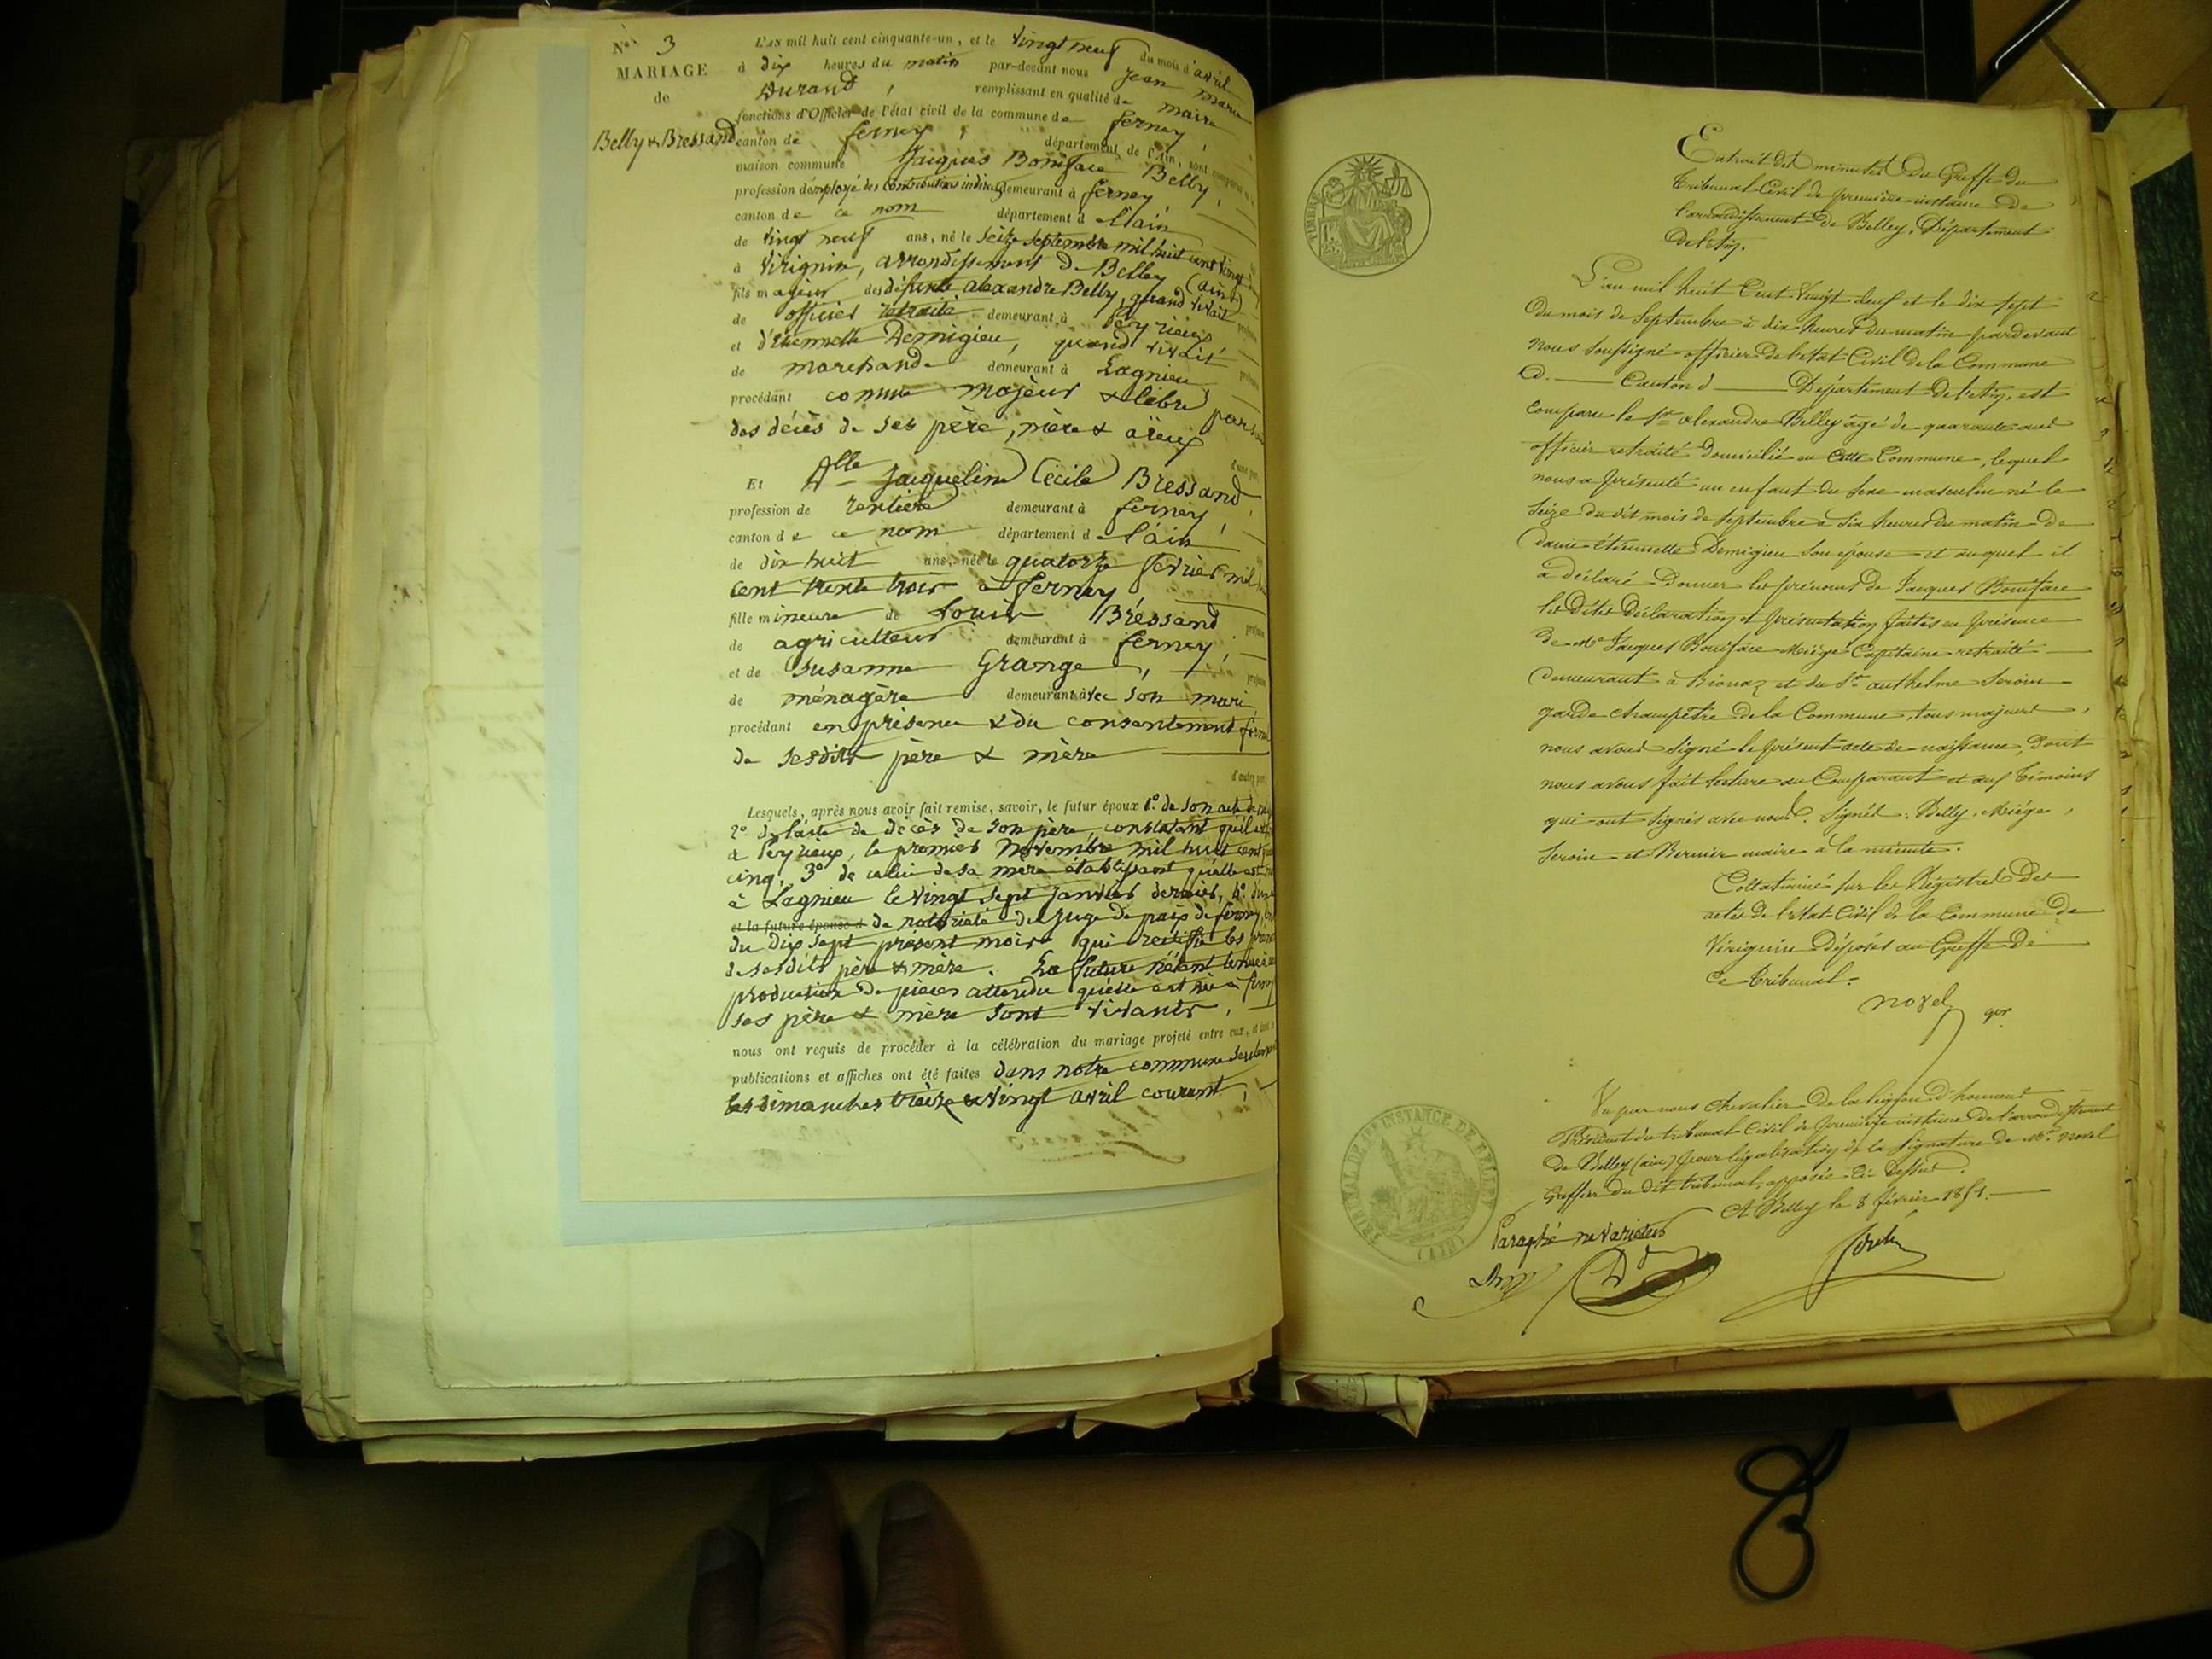 N° 3
MARIAGE
de
Belly & Bressand
L'AN mil huit cent cinquante-un, et le vingt neuf du mois d'avril
à dix heures du matin par-devant nous Jean Marie
Durand, remplissant en qualité de maire
fonctions d'Officier de l'état civil de la commune de ferney,
canton de ferney, département de l'Ain, sont comparus
maison commune Jacques Boniface Belly,
profession d'employé des Contributions indirectes demeurant à ferney,
canton de ce nom département d l'ain
de vingt neuf ans, né le seize septembre mil huit cent vingt
à Virignin, arrondissement de Belley (ain)
fils majeur des défunts alexandre Belly, quand vivait
de officier retraité demeurant à Peyrieux
et d'Etiennette Demigieu, quand vivait
de marchande demeurant à Lagnieu
procédant comme majeur & libre par
des décès de ses père, mère & aïeux
d'une part
Et Dlle Jacqueline Cécile Bressand,
profession de rentière demeurant à ferney,
canton de ce nom département d l'ain
de dix huit ans, née le quatorze février mil
cent trente trois à ferney
fille mineure de Louis Bressand
de agriculteur demeurant à ferney,
et de Susanne Grange,
de ménagère demeurant avec son mari
procédant en présence & du consentement
de sesdits père & mère
d'autre part
Lesquels, après nous avoir fait remise, savoir, le futur époux 1° de son acte de
2° de l'acte de décès de son père, constatant qu'il est
à Peyrieux, le premier Novembre mil huit cent
cinq, 3° de celui de sa mère établissant qu'elle est
à Lagnieu le vingt sept janvier dernier, 4°
et la future épouse d de notoriété du juge de paix de ferney,
du dix sept présent mois qui rectifie les
de sesdits père & mère. La future n'étant tenue à
production de pièces attendu qu'elle est née à ferney
ses père & mère sont vivants,
nous ont requis de procéder à la célébration du mariage projeté entre eux, et dont
publications et affiches ont été faites dans notre commune seulement
les dimanches treize & vingt avril courant,
TIMBRE
Extrait des minutes du Greffe du
Tribunal Civil de première instance de
l'arrondissement de Belley, Département
de l'Ain.
L'an mil huit Cent Vingt deux et le dix sept
du mois de Septembre à dix heures du matin pardevant
nous soussigné officier de l'état-Civil de la Commune
d. Canton d Département de l'Ain, est
comparu le Sr alexandre Belly âgé de quarante ans
officier retraité domicilié en Cette Commune, lequel
nous a présenté un enfant du sexe masculin né le
seize du dit mois de Septembre à six heures du matin de
Dame étiennette Demigieu son épouse et auquel il
a déclaré donner les prénoms de Jacques Boniface
les dites déclaration et présentation faites en présence
de Mr Jacques Boniface Miége Capitaine retraité
demeurant à Brionaz et du Sr anthelme Seroin
garde champêtre de la Commune, tous majeurs,
nous avons signé le présent acte de naissance, dont
nous avons fait lecture au Comparant et aux témoins
qui ont signés avec nous. Signés: Belly, Miége,
Seroin et Bernier maire à la minute.
Collationné sur les Régistres des
actes de l'état Civil de la Commune de
Virignin déposés au Greffe de
ce tribunal.
novel
ger
Vu par nous chevalier de la légion d'honneur
Président du tribunal Civil de première instance de l'arrondissement
de Belley (ain) pour légalisation de la signature de Mr novel
Greffier du dit tribunal, apposée ci-dessus.
A Belley le 8 février 1851.
TRIBUNAL DE 1ERE INSTANCE DE BELLEY
(AIN)
Paraphé ne varietur